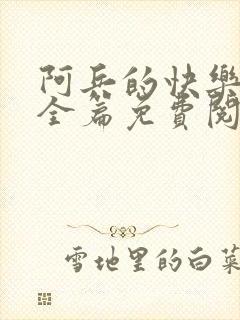 阿兵的快樂
全篇免費閱
雪地里的白菜